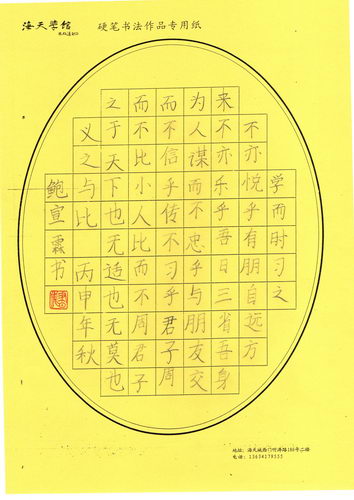 海天學館
硬笔书法作品专用纸
学而时习之
不亦悦乎有朋自远方
来不亦乐乎吾日三省吾身
为人谋而不忠乎与朋友交
而不信乎传不习乎君子周
而不比小人比而不周君子
之于天下也无适也无莫也
义之与比 丙申年秋
鲍宣霖书
地址：
电话：13654179555